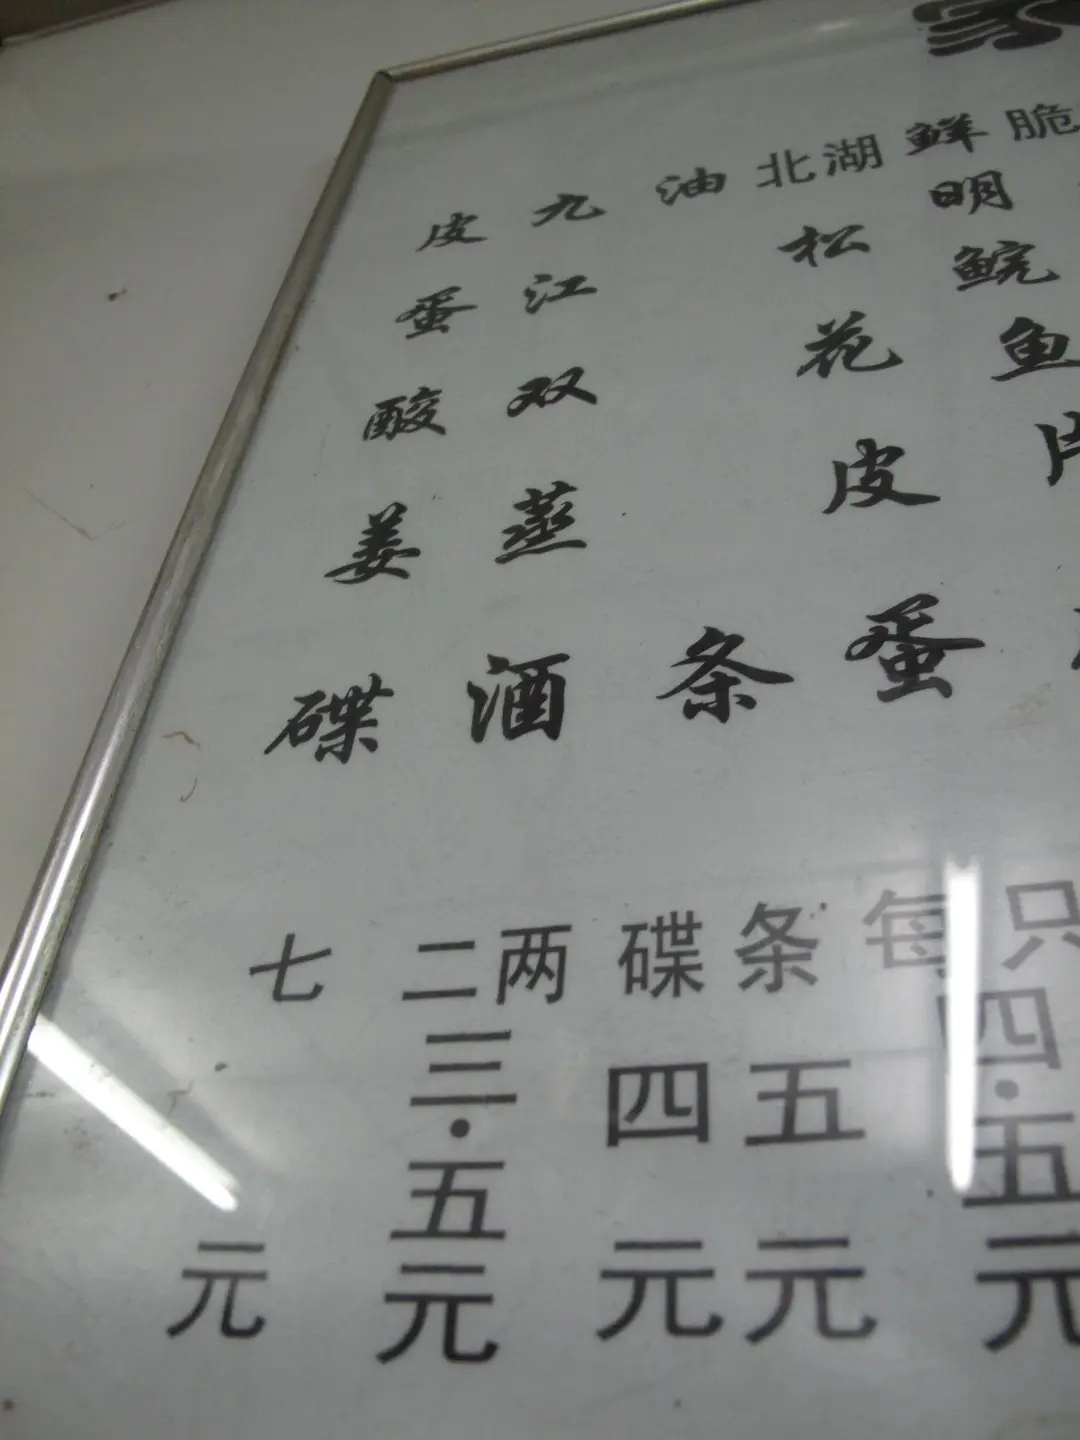 脆
鲜明鲩鱼
北湖松花皮蛋
每只四.五元
油条
条五元
碟四元
九江双蒸酒
二两三.五元
皮蛋酸姜碟
七元